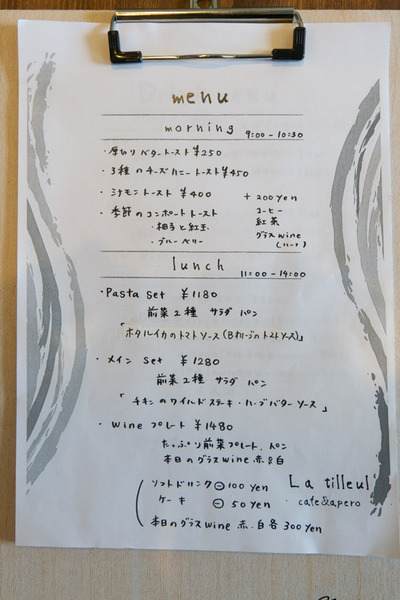 menu
morning 9:00-10:30
・厚切りバタートースト ¥250
・3種のチーズハニートースト ¥450
・シナモントースト ¥400 + 200yen
・季節のコンポートトースト コーヒー
・柚子と紅玉 紅茶
・ブルーベリー グラスwine
(ハーフ)
lunch 11:00-14:00
・Pasta set ¥1180
前菜2種 サラダ パン
「ホタルイカのトマトソース
・メイン set ¥1280
前菜2種 サラダ パン
「チキンのワイルドステーキ・ハーブバターソース」
・wine プレート ¥1480
たっぷり前菜プレート、パン
本日のグラスwine 赤or白
ソフトドリンク ⊖100yen
ケーキ ⊖50yen
本日のグラスwine 赤・白各300yen
La tilleul
cafe&apero